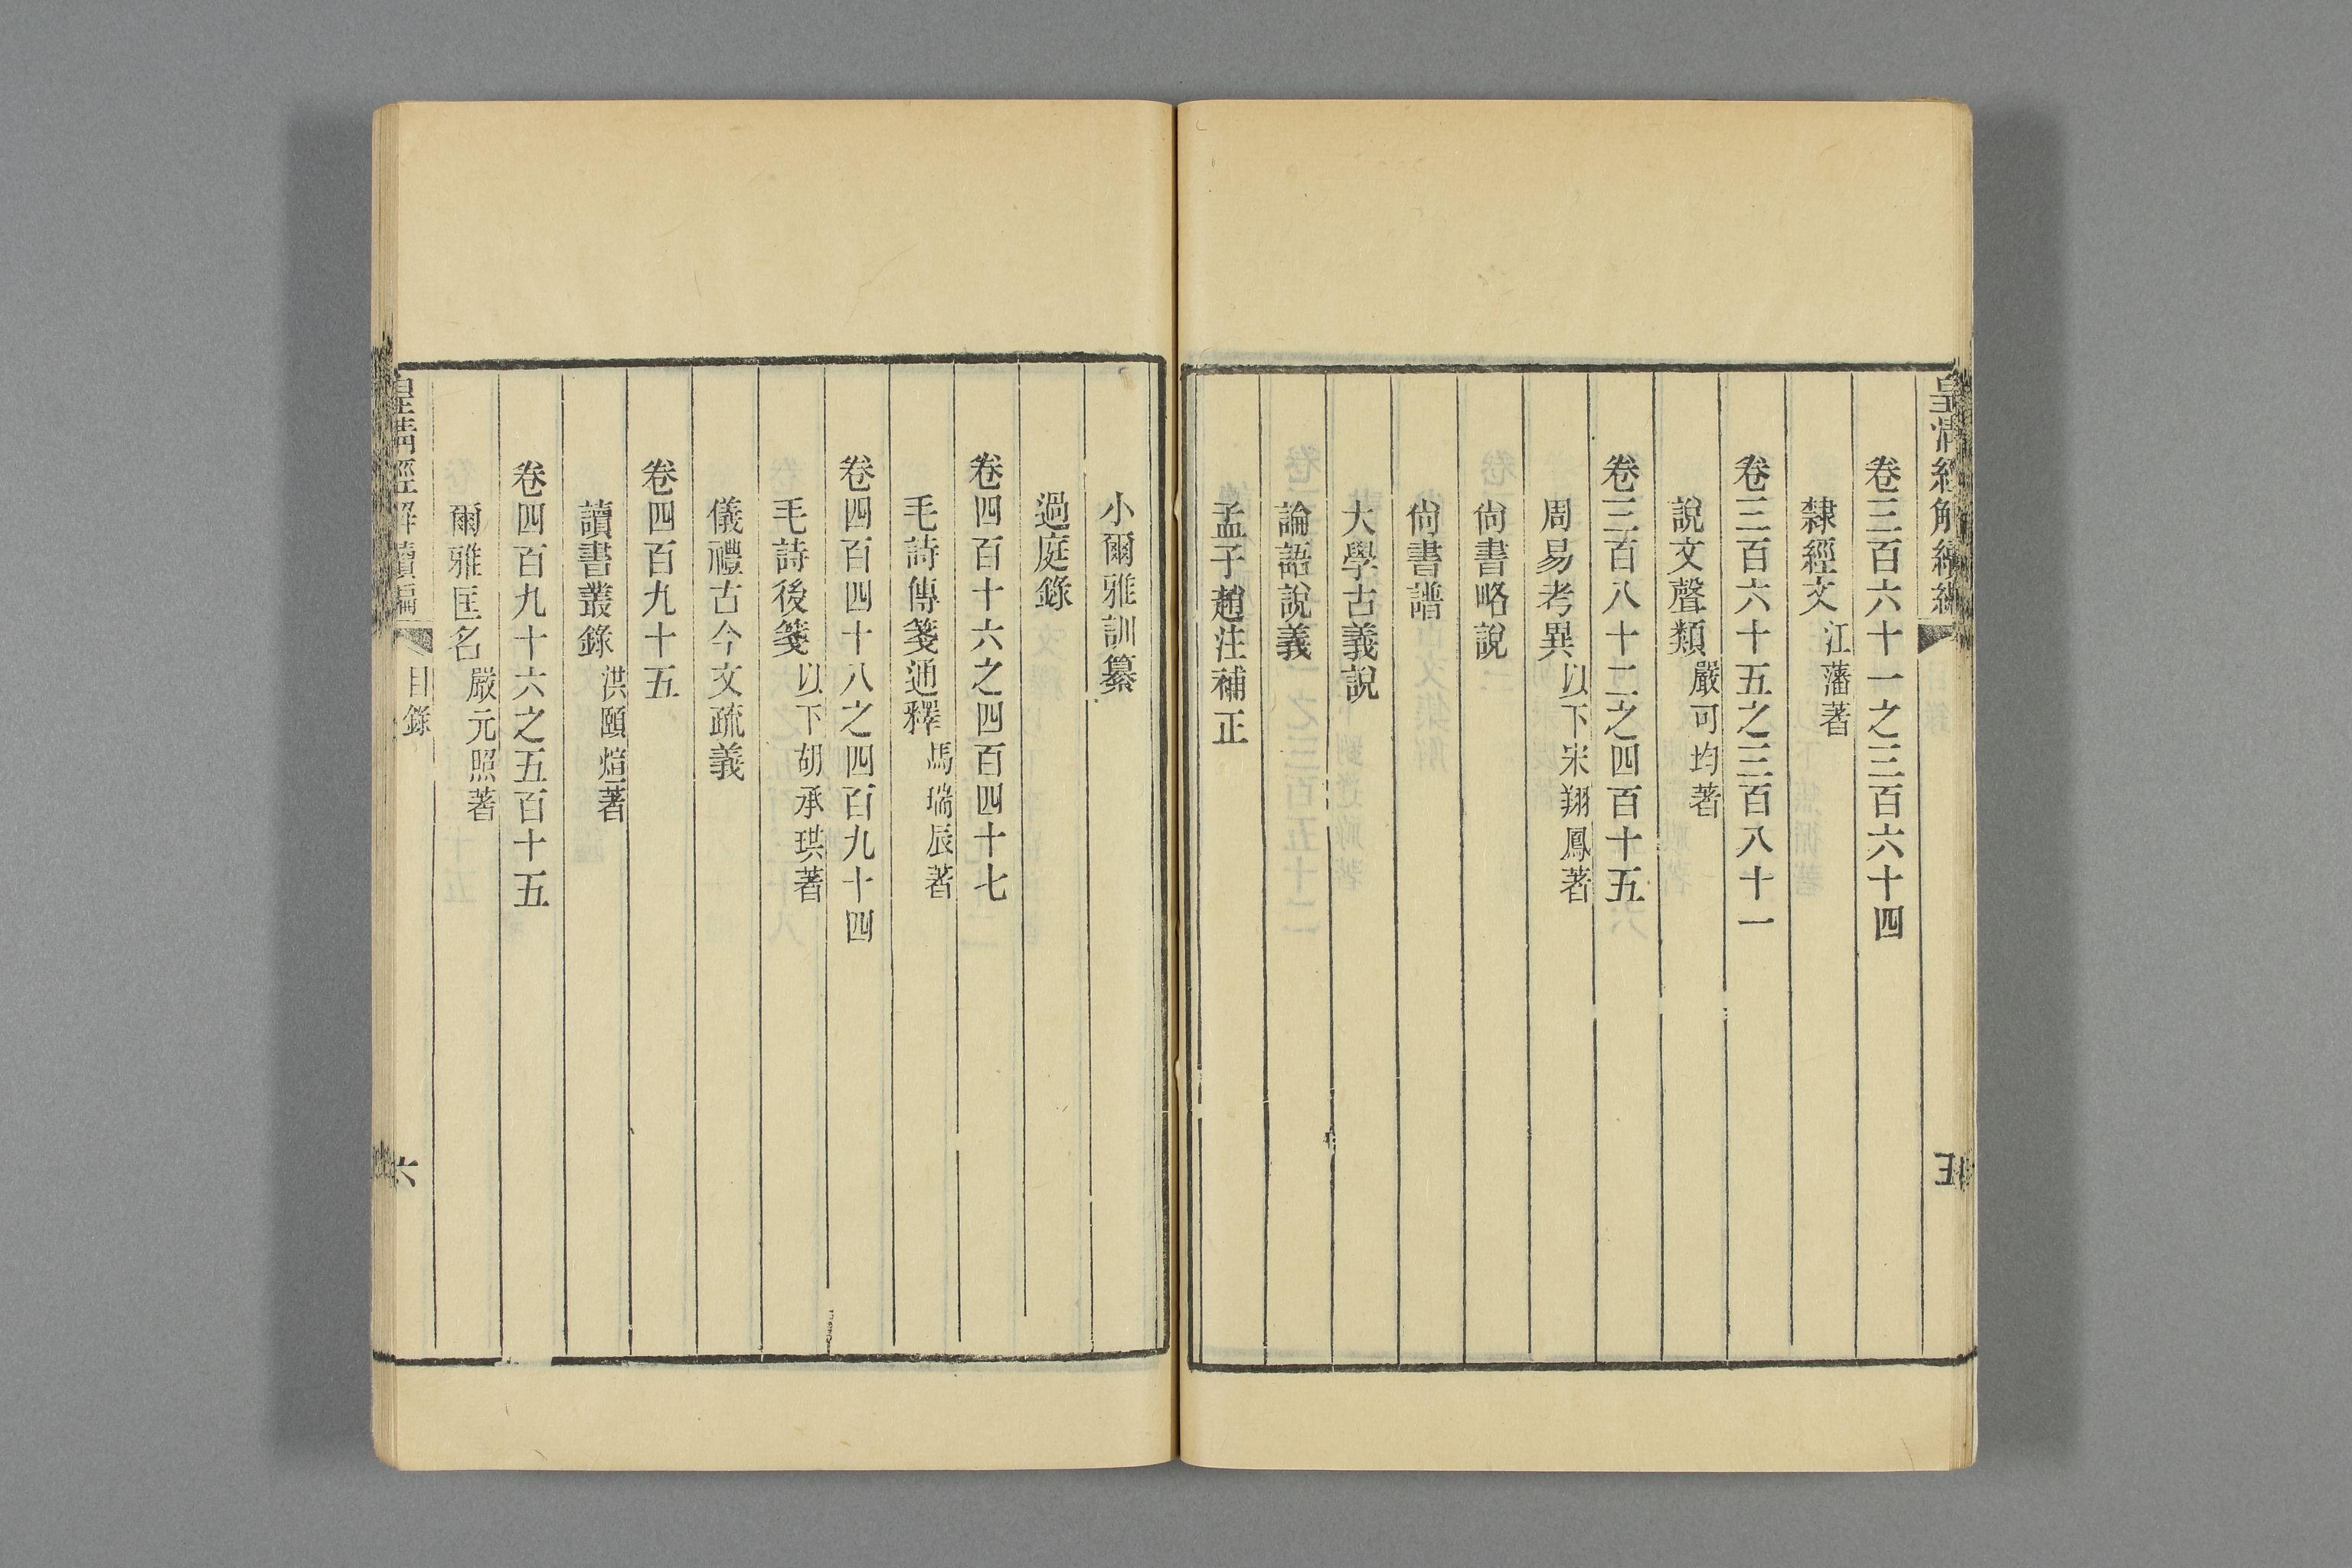 皇清經解續編
五
卷三百六十一之三百六十四
隸經文 江藩著
卷三百六十五之三百八十一
說文聲類 嚴可均著
卷三百八十二之四百十五
周易考異 以下宋翔鳳著
尙書略說
尙書譜
大學古義說
論語說義
孟子趙注補正
小爾雅訓纂
過庭錄
卷四百十六之四百四十七
毛詩傳箋通釋 馬瑞辰著
卷四百四十八之四百九十四
毛詩後箋 以下胡承珙著
儀禮古今文疏義
卷四百九十五
讀書叢錄 洪頤煊著
卷四百九十六之五百十五
爾雅匡名 嚴元照著
皇清經解續編
目錄
六